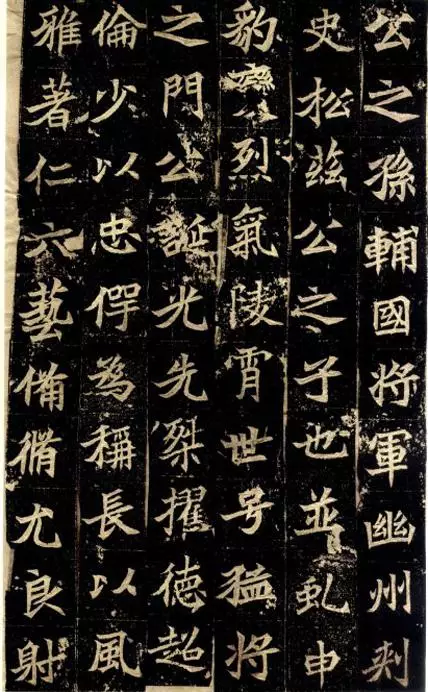 公之孫輔國將軍幽州刾
史松茲公之子也並虬申
豹烈氣陵霄世号猛將
之門公誕光先桀擢德超
倫少以忠為稱長以風
雅著仁六藝備脩尤良射